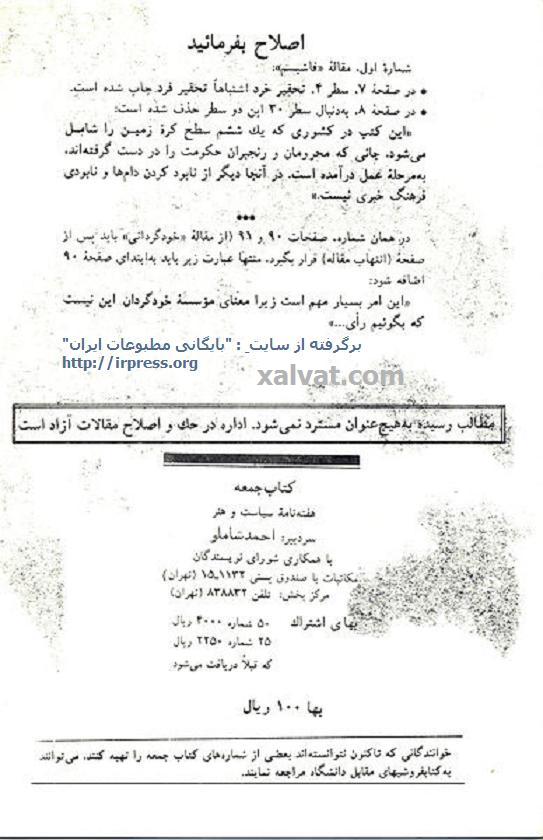 اصلاح بفرمائید
شمارهٔ اول، مقالهٔ «فاشیسم»:
• در صفحهٔ ۷، سطر ۴، تحقیر خرد اشتباهاً تحقیر فرد چاپ شده است.
• در صفحهٔ ۸، به‌دنبال سطر ۳۰ این دو سطر حذف شده است:
«این کتب در کشوری که یك ششم سطح کرهٔ زمین را شامل
می‌شود، جائی که محرومان و رنجبران حکومت را در دست گرفته‌اند،
به‌مرحلهٔ عمل درآمده است. در آنجا دیگر از نابود کردن دام‌ها و نابودی
فرهنگ خبری نیست.»
•••
در همان شماره، صفحات ۹۰ و ۹۱ (از مقالهٔ «خودگردانی») باید پس از
صفحهٔ (انتهاب مقاله) قرار بگیرد. منتها عبارت زیر باید به‌ابتدای صفحهٔ ۹۰
اضافه شود:
«این امر بسیار مهم است زیرا معنای مؤسسهٔ خودگردان این نیست
که بگوئیم رأی...»
برگرفته از سایت : "بایگانی مطبوعات ایران"
http://irpress.org
xalvat.com
مطالب رسیده به‌هیچ‌عنوان مسترد نمی‌شود. اداره در حك و اصلاح مقالات آزاد است
کتاب جمعه
هفته‌نامهٔ سیاست و هنر
سردبیر: احمد شاملو
با همکاری شورای نویسندگان
مکاتبات با صندوق پستی ۱۱۳۲-۱۵ (تهران)
مرکز پخش: تلفن ۸۳۸۸۳۲ (تهران)
بهای اشتراك ۵۰ شماره ۴۰۰۰ ریال
۲۵ شماره ۲۲۵۰ ریال
که قبلاً دریافت می‌شود
بها ۱۰۰ ریال
خوانندگانی که تاکنون نتوانسته‌اند بعضی از شماره‌های کتاب جمعه را تهیه کنند، می‌توانند
به‌کتابفروشیهای مقابل دانشگاه مراجعه نمایند.